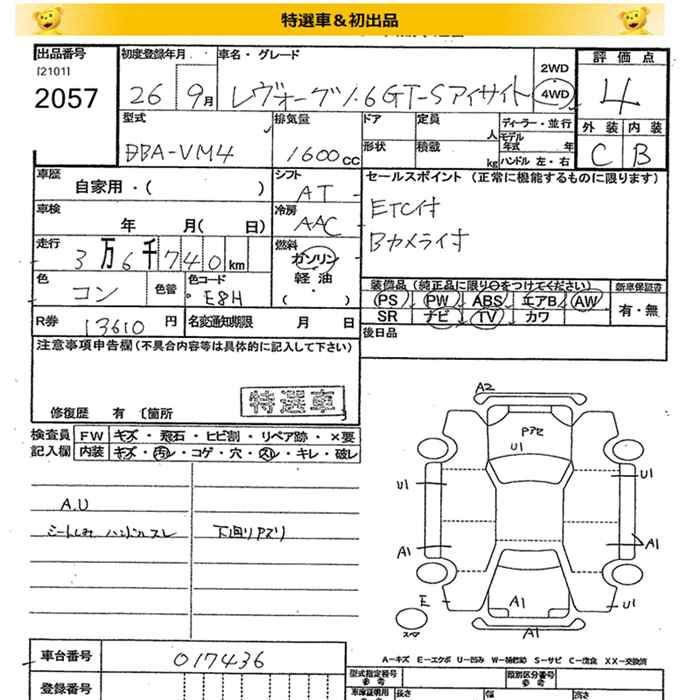 特選車＆初出品
出品番号
[2101]
2057
初度登録年月
26
9月
車名・グレード
レヴォーグ1.6GT-Sアイサイト
2WD
4WD
評価点
4
外装 内装
C B
型式
DBA-VM4
排気量
1600cc
ドア
定員
人
形状
積載
kg
ディーラー・並行
モデル年式 年
ハンドル 左・右
車歴
自家用・( )
シフト
AT
冷房
AAC
セールスポイント (正常に機能するものに限ります)
ETC付
Bカメラ付
車検
年 月( 日)
走行
3万6千740km
燃料
ガソリン
軽油
( ・ )
色
コン
色替
色コード
E8H
R券
13610円
名変通知期限 月 日
装備品 (純正品に限り○をつけてください)
PS PW ABS エアB AW
SR ナビ TV カワ
新車保証書
有・無
後日品
注意事項申告欄(不具合内容等は具体的に記入して下さい)
特選車
修復歴 有 [箇所 ]
検査員記入欄
FW キズ・飛石・ヒビ割・リペア跡・×要
内装 キズ・汚レ・コゲ・穴・スレ・キレ・破レ
A.U
シートしみ ハンドルスレ
下回りサビ
A2
U1
U1
U1
A1
A1
E
A1
U1
A1
スペア
A－キズ E－エクボ U－凹み W－補修跡 S－サビ C－腐食 XX－交換済
車台番号
017436
登録番号
型式指定番号
参考
類別区分番号
参考
車庫証明用
長さ
幅
高さ